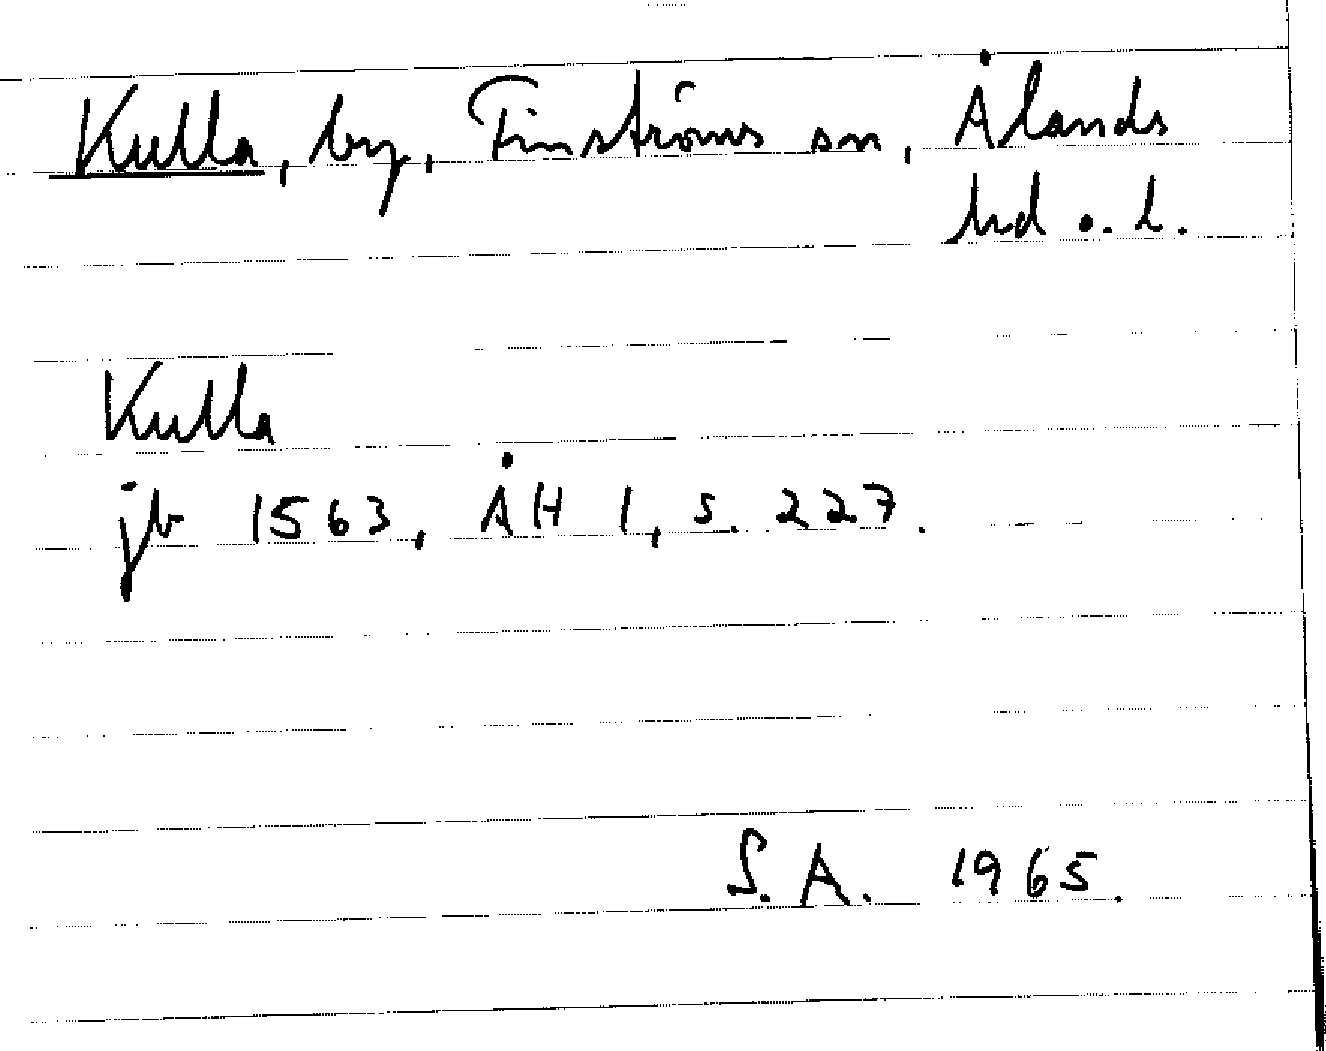 Kulla, by, Finströms sn, Ålands
hd o. l.
Kulla
jb 1563, ÅH 1, s. 227.
S. A. 1965.